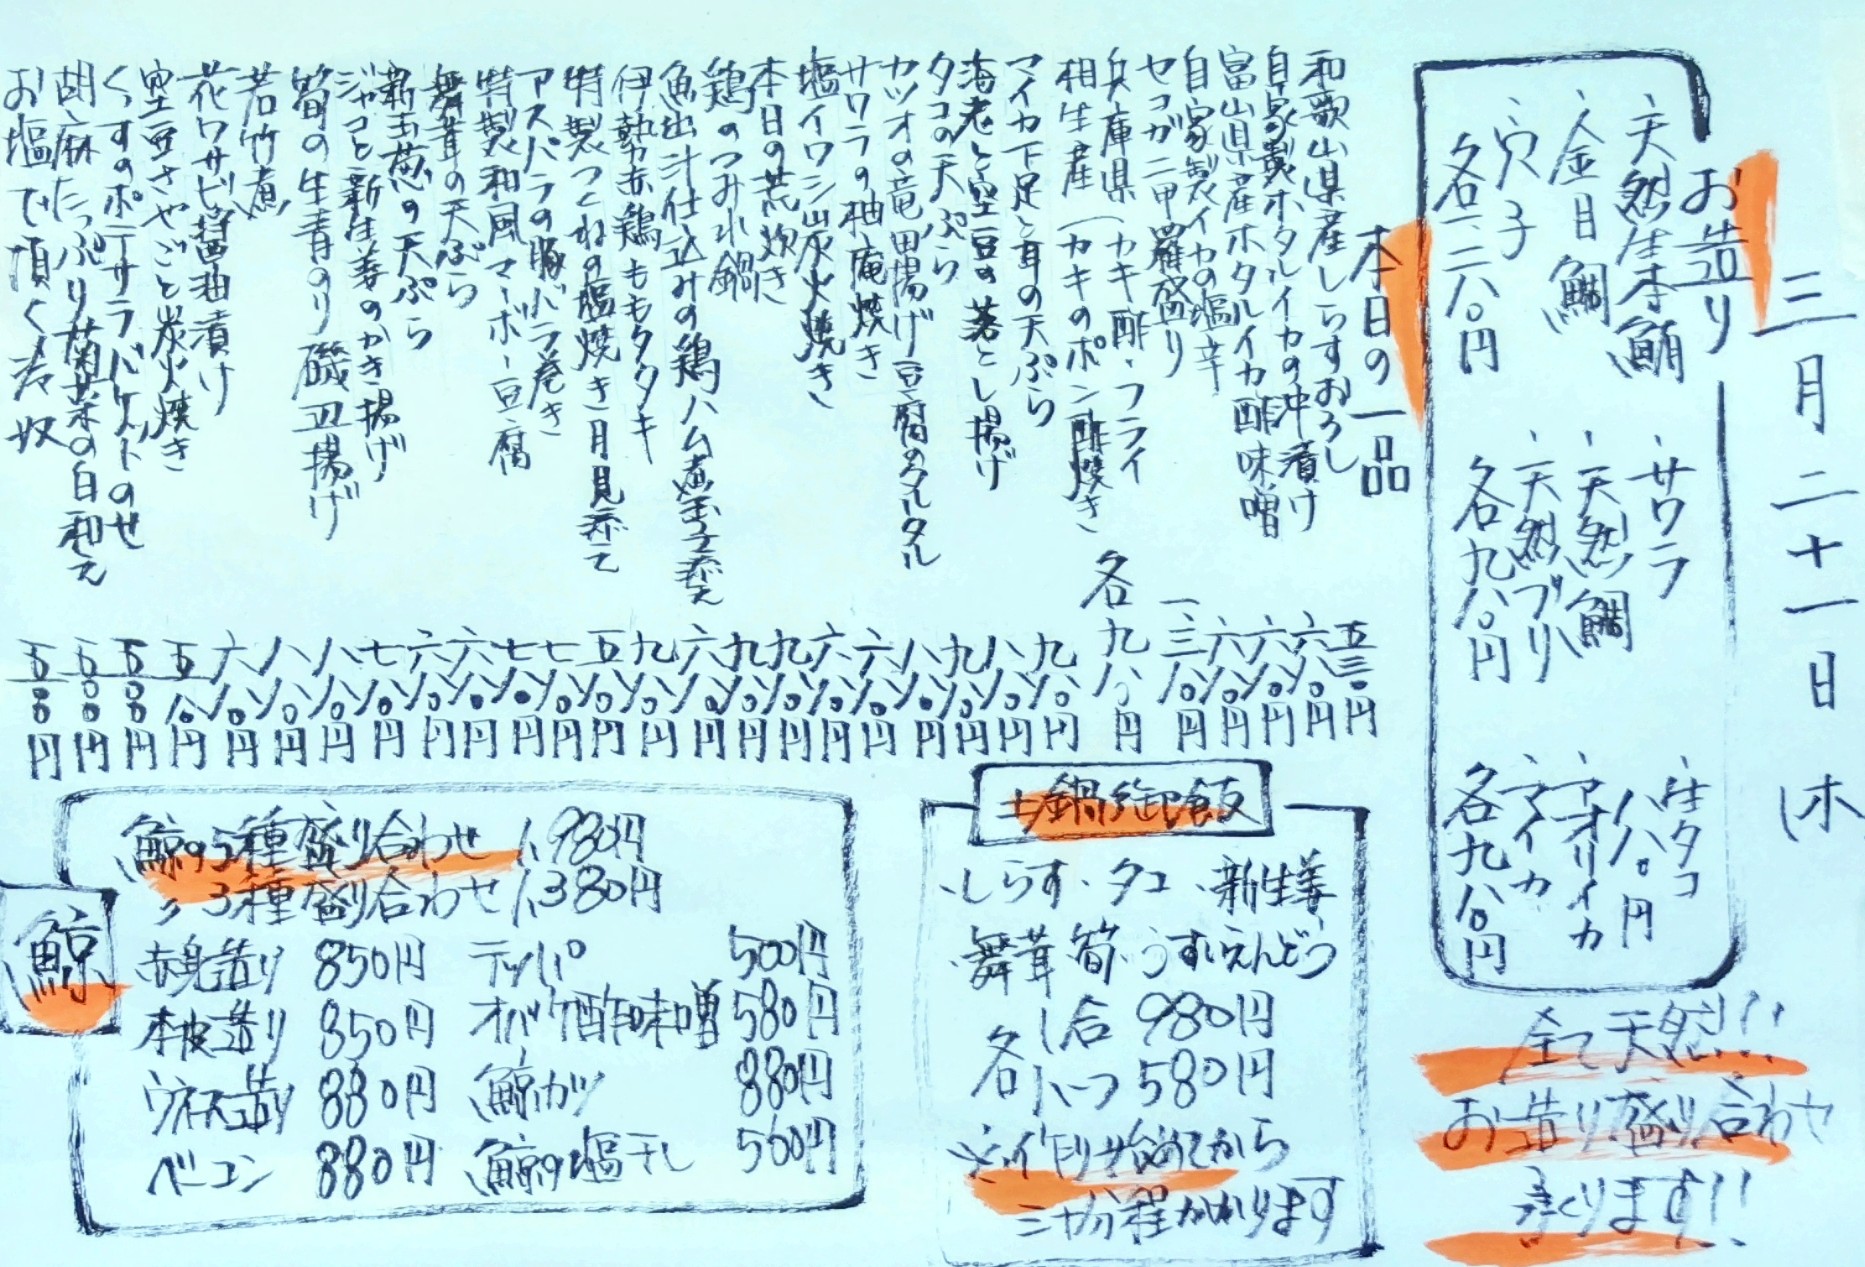 三月二十一日(木
お造り
・天然生本鮪
・金目鯛
・穴子
各一、二八〇円
・サワラ
・天然鯛
・天然ブリ
各九八〇円
・生タコ
八八〇円
・アオリイカ
・マイカ
各九八〇円
全て天然!!!
お造り盛り合わせ
承ります!!
本日の一品
和歌山県産しらすおろし 五三〇円
自家製ホタルイカの沖漬け 六八〇円
富山県産ホタルイカ酢味噌 六八〇円
自家製イカの塩辛 六八〇円
セコガニ甲羅盛り 一、三八〇円
兵庫県 カキ酢・フライ
相生産 カキのポン酢焼き 各九八〇円
マイカ下足と耳の天ぷら 九八〇円
海老と空豆の落とし揚げ 八八〇円
タコの天ぷら 九八〇円
カツオの竜田揚げ豆腐のタルタル 八八〇円
サワラの柚庵焼き 六八〇円
塩イワシ炭火焼き 六八〇円
本日の荒炊き 九八〇円
鶏のつみれ鍋 九八〇円
魚出汁仕込みの鶏ハム煮玉子添え 六八〇円
伊勢赤鶏ももタタキ 九八〇円
特製つくねの塩焼き月見添て 五八〇円
アスパラの豚バラ巻き 七八〇円
特製和風マーボー豆腐 七八〇円
舞茸の天ぷら 六八〇円
新玉葱の天ぷら 六八〇円
ジャコと新生姜のかき揚げ 七八〇円
筍の生青のり磯辺揚げ 八八〇円
若竹煮 八八〇円
花ワサビ醤油漬け 六八〇円
空豆さやごと炭火焼き 五八〇円
くっすのポテサラバケットのせ 五〇〇円
胡麻たっぷり菊菜の白和え 五〇〇円
お塩で頂く冷奴 五〇〇円
土鍋御飯
・しらす・タコ・新生姜
・舞茸・筍・うすいえんどう
各 一合 980円
ハーフ 580円
※作り始めてから
三十分程かかります
鯨
鯨の5種盛り合わせ 1,980円
〃 3種盛り合わせ 1,380円
赤身造り 850円 テッパ 500円
本皮造り 850円 オバケ酢味噌 580円
ウネス造り 880円 鯨カツ 880円
ベーコン 880円 鯨の塩干し 560円